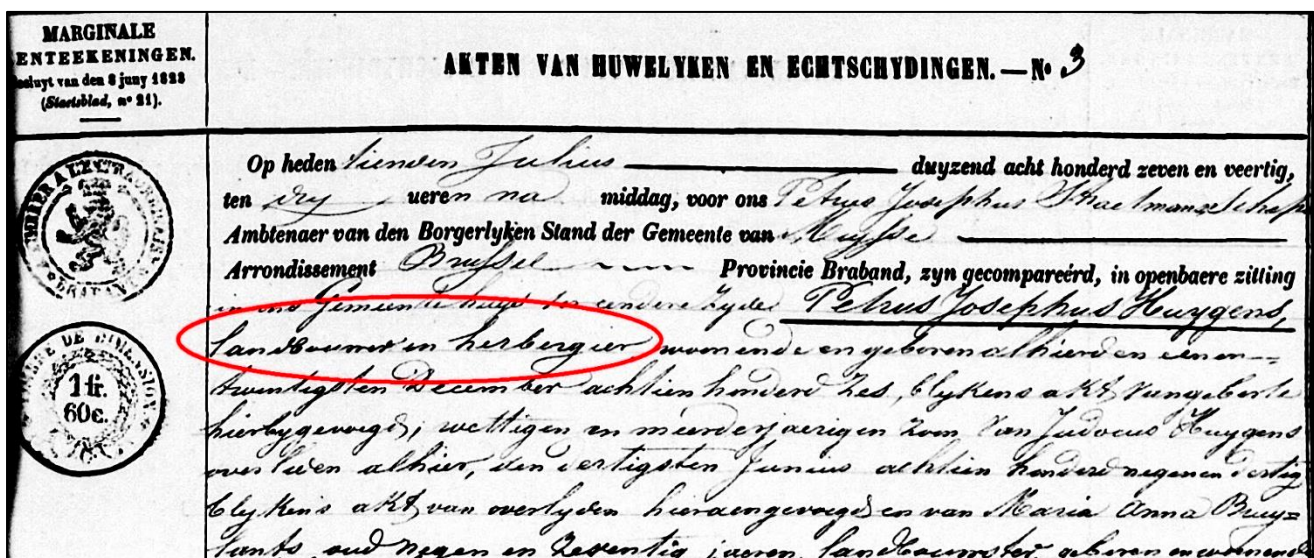 MARGINALE
ENTEEKENINGEN.
besluyt van den 8 juny 1823
(Staetsblad, nº 21).
AKTEN VAN HUWELYKEN EN ECHTSCHYDINGEN. — Nº 3
Op heden tienden Julius duyzend acht honderd zeven en veertig,
ten dry ueren na middag, voor ons Petrus Josephus
Ambtenaer van den Borgerlyken Stand der Gemeente van Muysse
Arrondissement Brussel Provincie Braband, zyn gecompareérd, in openbaere zitting
in ons Gemeente huys ter eendere zyde Petrus Josephus Huygens,
Landbouwer en herbergier, woonende en geboren alhier den eenen-
twentigsten December achtien honderd zes, blykens akt van geboorte
hierbygevoegd; wettigen en meerderjaerigen zoon van Judocus Huygens
overleden alhier, den dertigsten Junius achtien honderd negenendertig
blykens akt van overlyden hieraengevoegd en van Maria Anna Bruy=
lants, oud negen en zeventig jaeren, Landbouwster, geboren en woonende
TIMBRE
BRABANT
1 fr.
60 c.